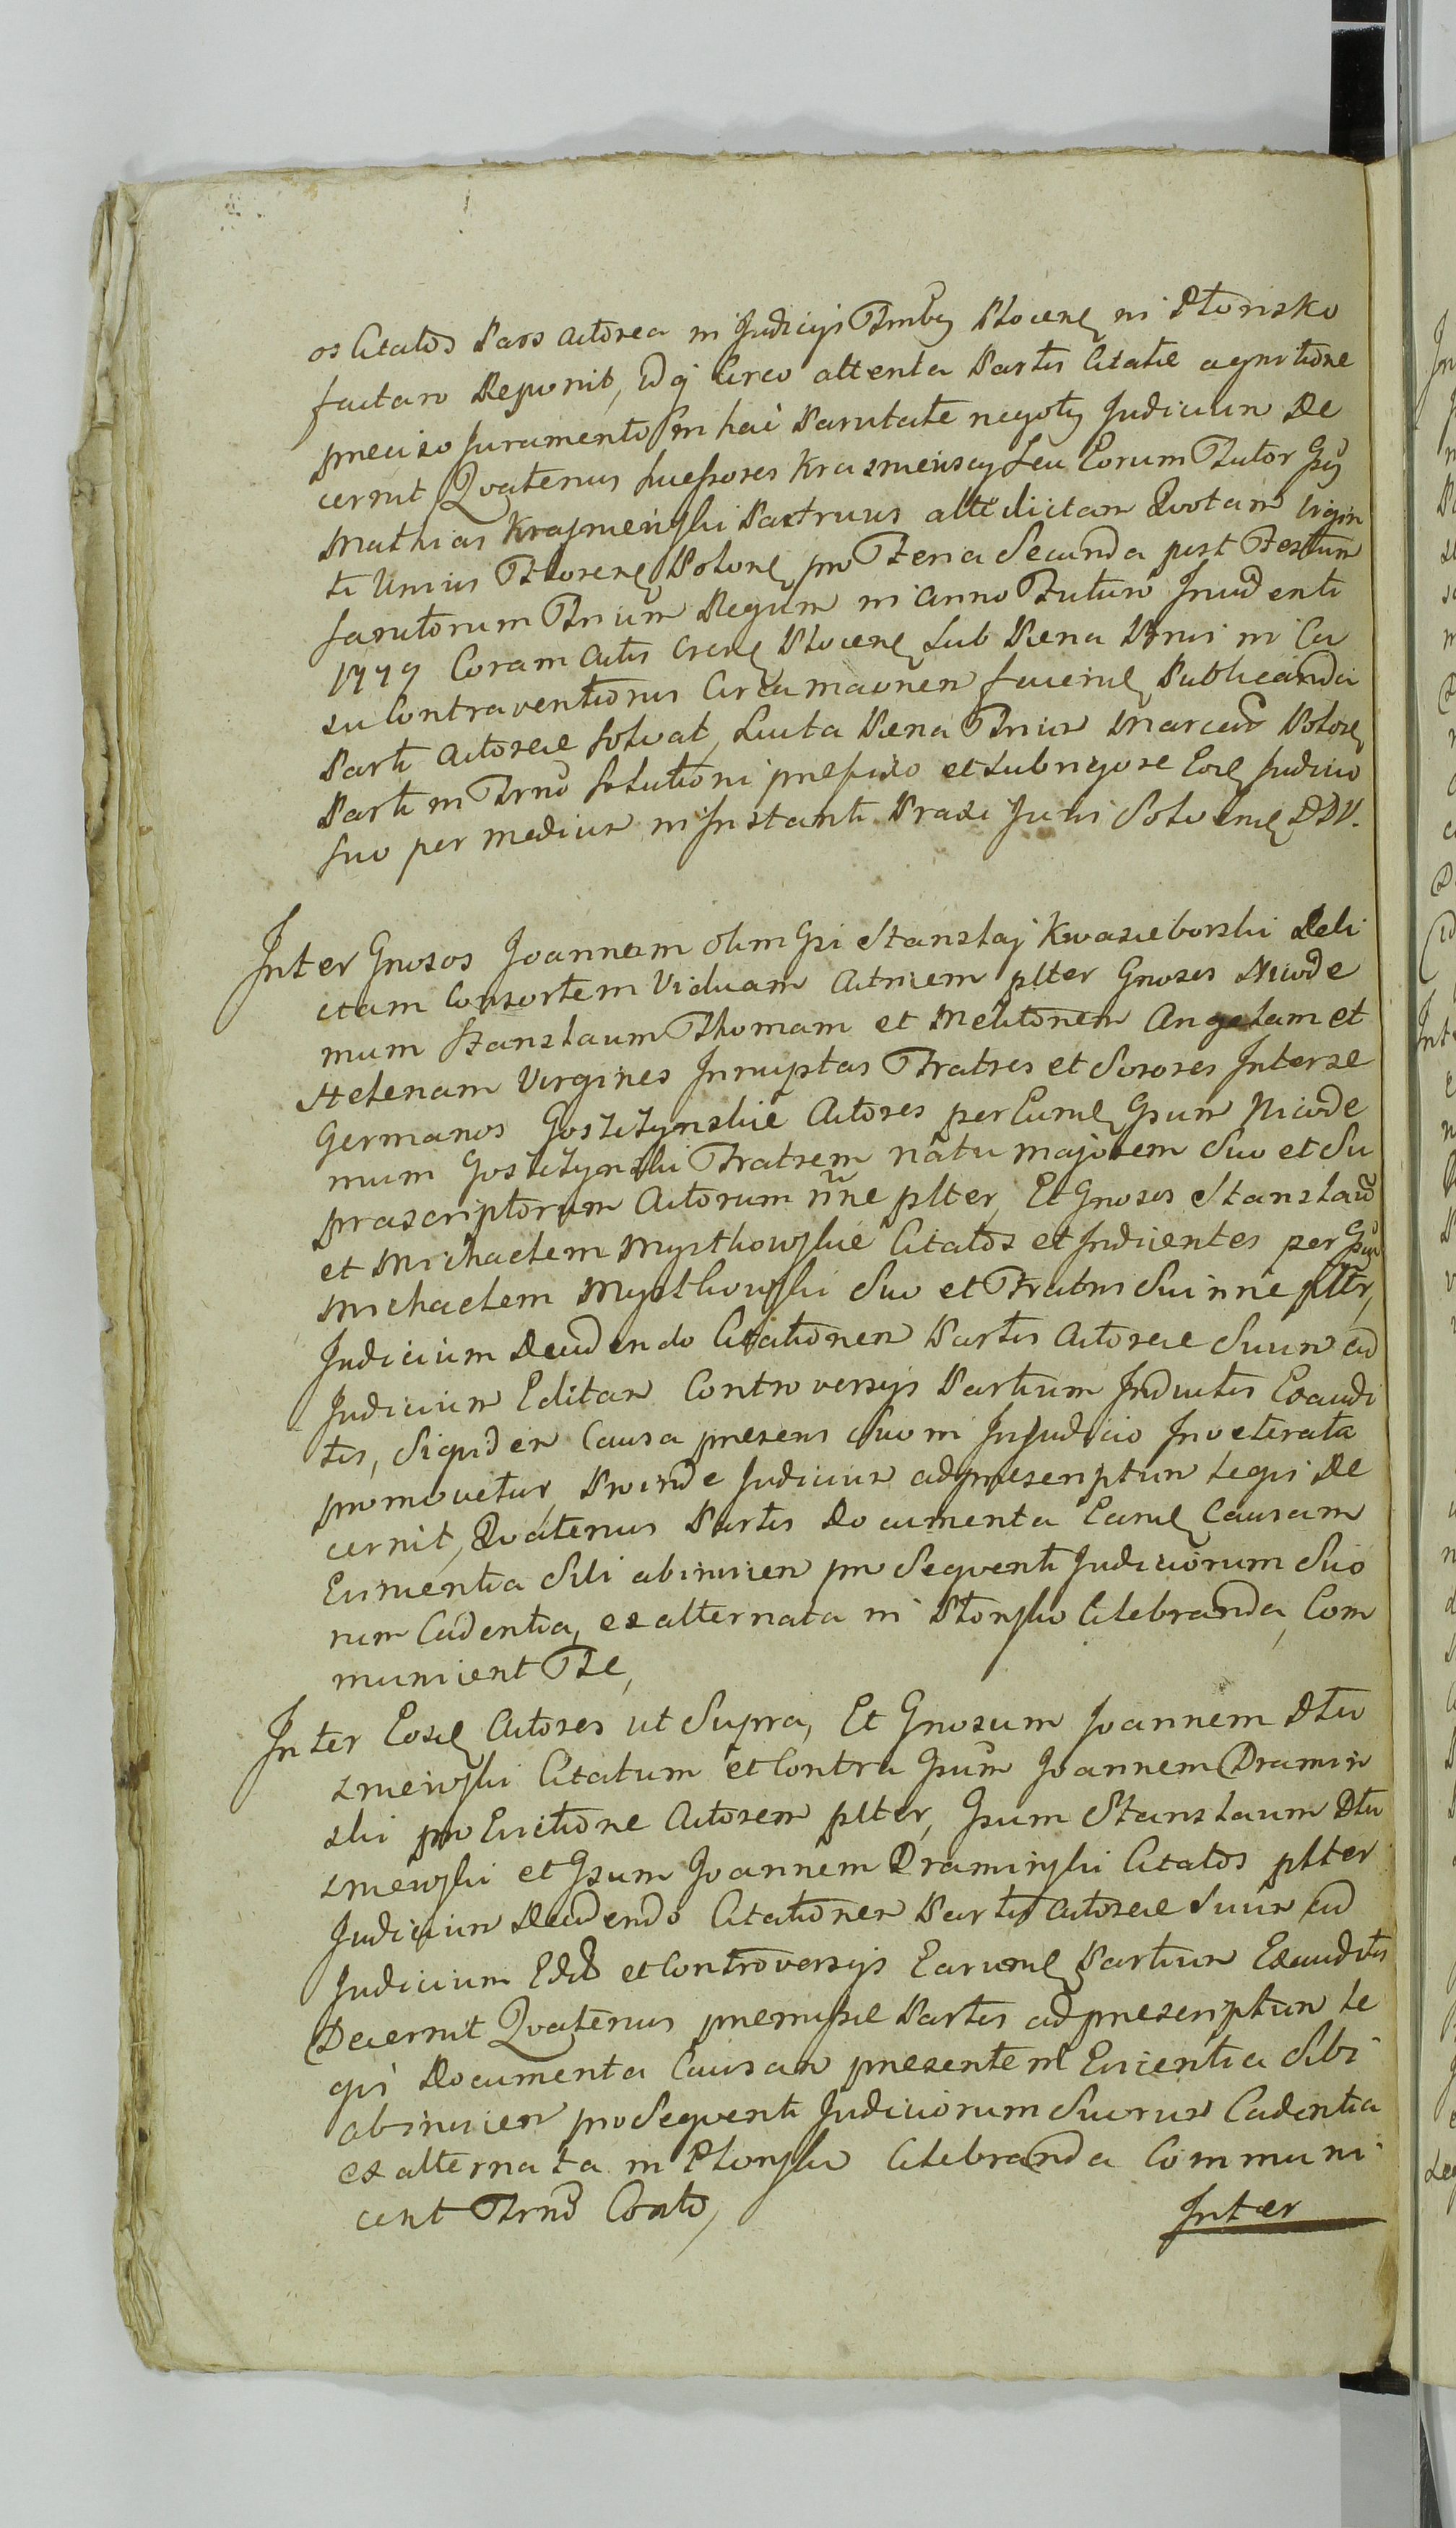 os Citatos Pars Actorea in Judicijs Trnlbus Plocen in Płonsko
factam Deponit, Idq Circo attenta Partis Citatae agnitione
praeciso Juramento in hac Paritate negotij Judicium De
cernit Qvatenus Successores Krasmienscy seu Eorum Tutor Gsus
Mathias Krasmienski Patruus alte dictam Qvotam Vigin
ti Unius Florenos Polon pro Feria Secunda post Festum
Sanctorum Trium Regum in Anno Futuro Incidenti
1779 Coram Actis Cren Plocen sub Paena Bnis in Ca
su Contraventionis Circa maonen faciend Publicanda
Parti Actoreae solvat, Lucta Paena Trium Marcar Polon
Parti in Trno Solutioni praefixo et sub rigore Eod Judicio
suo per medium in Instanti Praxi Juris Solvend DDV.
Inter Gnosos Joannem olim Gsi Stanislaj Kwasieborski Reli
ctam Consortem Viduam Actricem plter Gnosos Nicode
mum Stanislaum Thomam et Melitonem Angelam et
Helenam Virgines Innuptas Fratres et Sorores Inter se
Germanos Gostczynskie Actores per Eund Gsum Nicode
mum Gostczynski Fratrem natu majorem Suo et Su
prascriptorum Actorum nne plter, Et Gnosos Stanislau
et Michaelem Mystkowskie Citatos et Indicentes per Gsum
Michaelem Mystkowski Suo et Fratris Sui nne plter,
Judicium Decidendo Citationem Partis Actoreae Suum ad
Judicium Editam Controversijs Partium Inductis Exaudi
tis, Siquidem Causa praesens Suo in Injudicio Inveterata
promovetur, Proinde Judicium ad praescriptum Legis De
cernit, Qvatenus Partes Documenta Eand Causam
Evincentia Sibi abinvicem pro Seqventi Judiciorum Suo
rum Cadentia, ex alternata in Płonsko Celebranda, Com
municent Tte,
Inter Eosd Actores ut Supra, Et Gnosum Joannem Dłu
zniewski Citatum et Contra Gsum Joannem Dramin
ski pro Evictione Actorem plter, Gsum Stanislaum Dłu
zniewski et Gsum Joannem Draminski Citatos plter
Judicium Decidendo Citationem Partis Actoreae Suum ad
Judicium Edit et Controversijs Earund Partium Exauditis
Decernit Qvatenus praemissae Partes ad praescriptum Le
gis Documenta Causam praesentem Evicentia Sibi
abinvicem pro Seqventi Judiciorum Suorum Cadentia
ex alternata in Płonsko Celebranda Communi
cent Trno Conto,
Inter